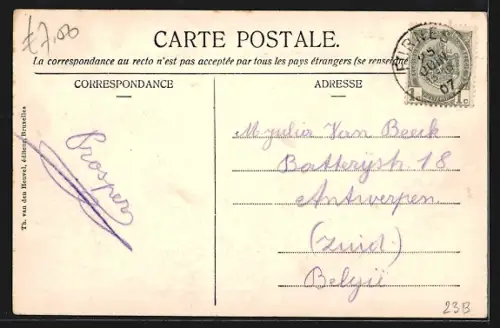 £7,00
CARTE POSTALE.
La correspondance au recto n'est pas acceptée par tous les pays étrangers (se renseigne
CORRESPONDANCE
ADRESSE
FURNES
25
JUIN
07
1 c 1 c
Th. van den Heuvel, éditeur, Bruxelles
Prosper
Mjulia Van Beeck
Batterijstr. 18
Antwerpen
(Zuid)
België
23B